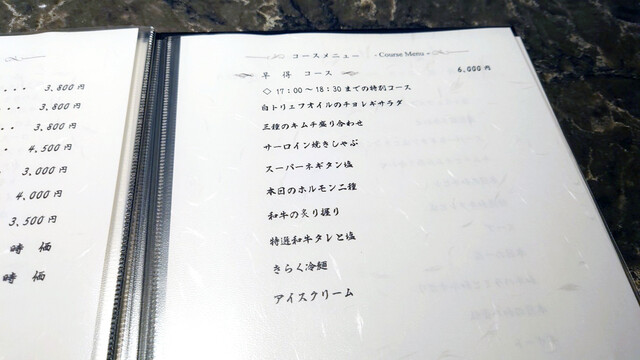 3,800円
3,800円
3,800円
4,500円
3,000円
4,000円
3,500円
時 価
時 価
コースメニュー - Course Menu -
早 得 コース 6,000円
◇ 17:00～18:30までの特別コース
白トリュフオイルのチョレギサラダ
三種のキムチ盛り合わせ
サーロイン焼きしゃぶ
スーパーネギタン塩
本日のホルモン二種
和牛の炙り握り
特選和牛タレと塩
きらく冷麺
アイスクリーム